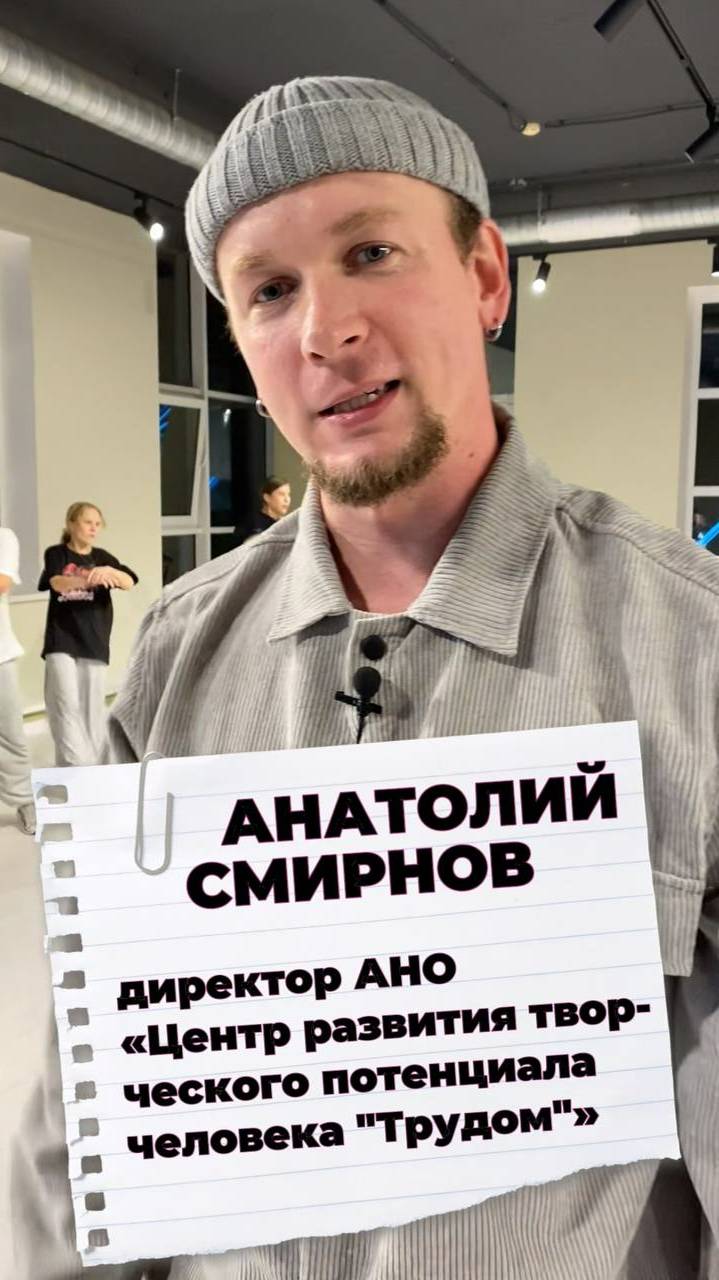 АНАТОЛИЙ
СМИРНОВ
директор АНО
«Центр развития твор-
ческого потенциала
человека "Трудом"»